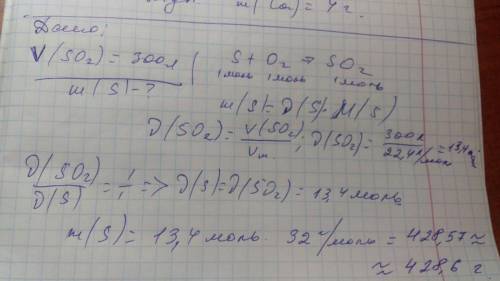 m(Ca) = 4 г.
Дано:
V(SO₂) = 300л
m(S) - ?
S + O₂ = SO₂
1моль 1моль 1моль
m(S) = D(S)·M(S)
D(SO₂) = V(SO₂)/Vm; D(SO₂) = 300л/22,4л/моль = 13,4
D(SO₂)/D(S) = 1/1 => D(S) = D(SO₂) = 13,4 моль
m(S) = 13,4 моль · 32 г/моль = 428,57 ≈
≈ 428,6 г.